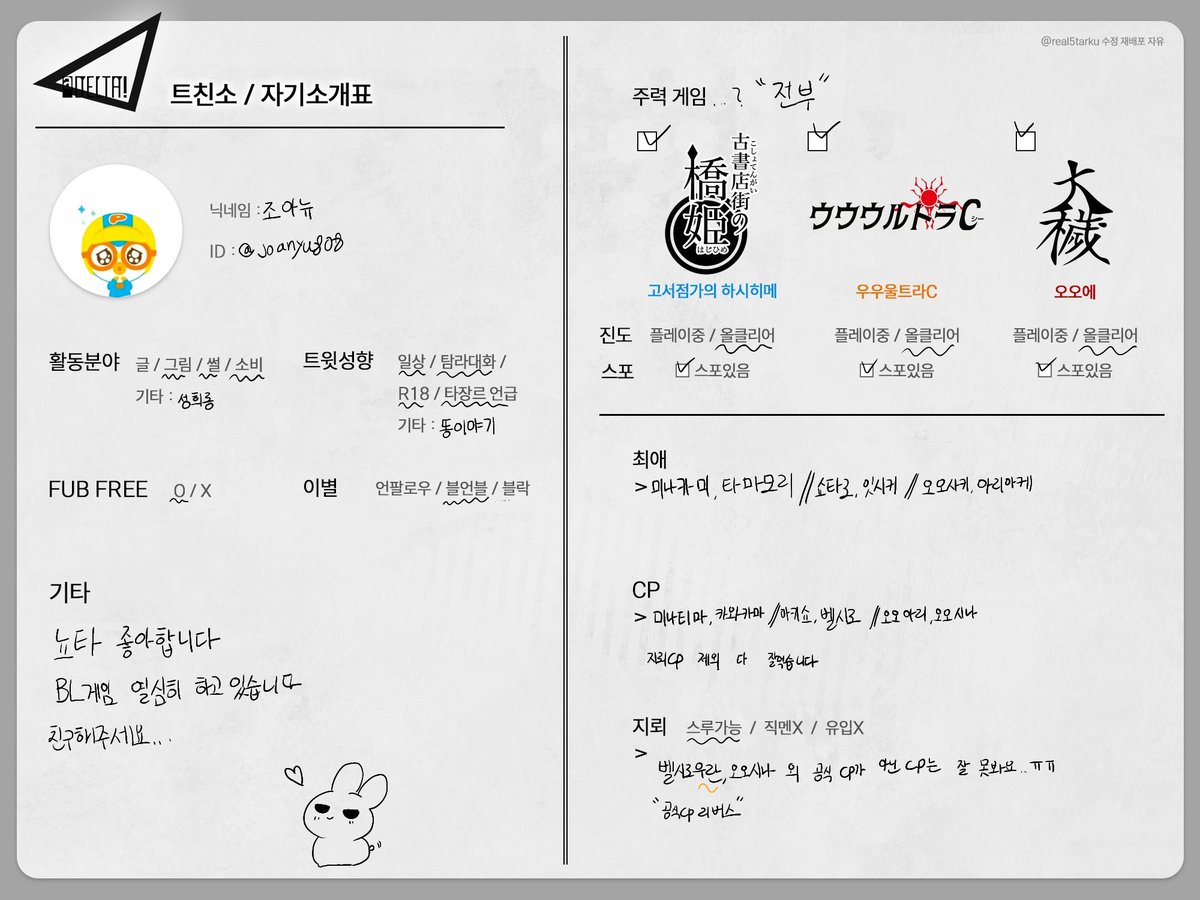 @real5tarku 수정 재배포 자유
ADELTA!
트친소 / 자기소개표
닉네임 : 조아뉴
ID : @joanyu808
활동분야 글 / 그림 / 썰 / 소비
기타 : 성희롱
트윗성향 일상 / 탐라대화 /
R18 / 타장르 언급
기타 : 똥이야기
FUB FREE O / X
이별 언팔로우 / 블언블 / 블락
기타
뇨타 좋아합니다
BL게임 열심히 하고 있습니다
친구해주세요...
주력 게임 ...? "전부"
古書店街の
こしょてんがい
橋姫
はしひめ
ウウウルトラC
シー
大穢
고서점가의 하시히메
우우울트라C
오오에
진도 플레이중 / 올클리어 플레이중 / 올클리어 플레이중 / 올클리어
스포 스포있음 스포있음 스포있음
최애
> 미나카미, 타마모리 // 쇼타로, 잇시키 // 오오사키, 아리아케
CP
> 미나티마, 카와카마 // 아키쇼, 벨시로 // 오오아리, 오오시나
지뢰CP 제외 다 잘먹습니다
지뢰 스루가능 / 직멘X / 유입X
> 벨시로우란, 오오시나 외 공식 CP가 아닌 CP는 잘 못봐요..ㅠㅠ
"공식CP 리버스"